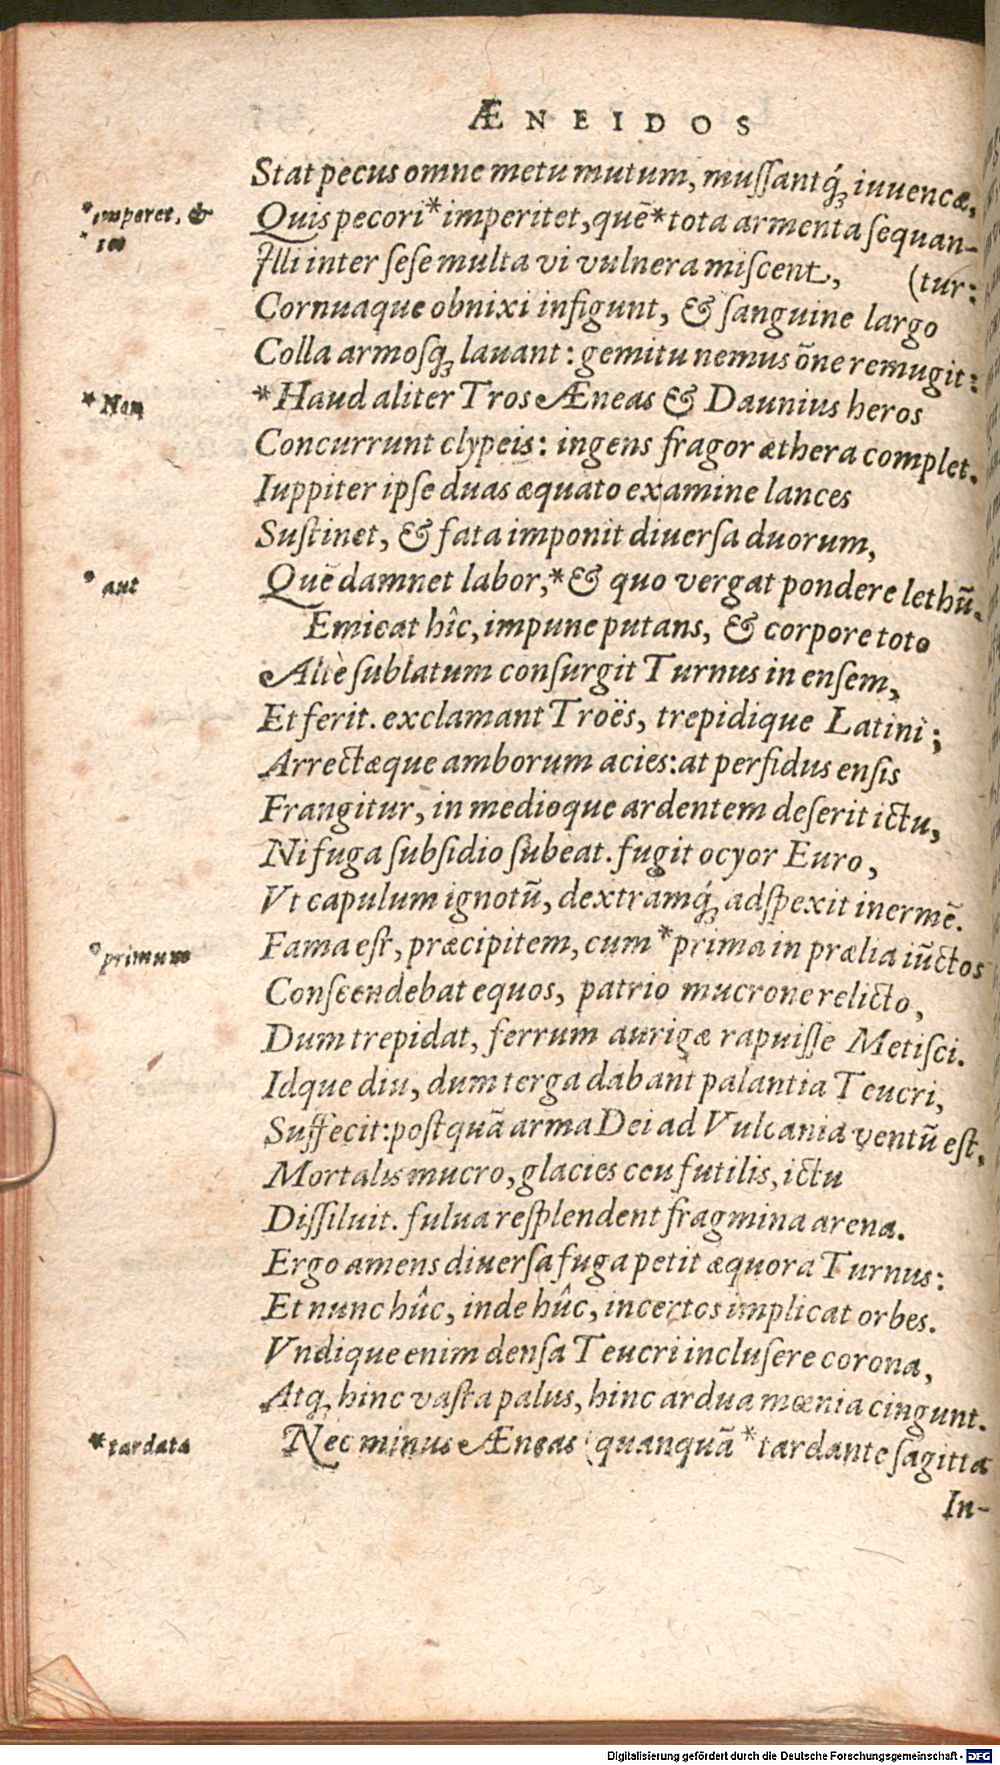 ÆNEIDOS
Stat pecus omne metu mutum, mussantq́; iuuencæ,
*imperet, &
Quis pecori * imperitet, quē * tota armenta sequan-
Illi inter sese multa vi vulnera miscent, (tur:
Cornuaque obnixi infigunt, & sanguine largo
Colla armosq; lauant: gemitu nemus ōne remugit:
*Non
*Haud aliter Tros Æneas & Daunius heros
Concurrunt clypeis: ingens fragor æthera complet.
Iuppiter ipse duas æquato examine lances
Sustinet, & fata imponit diuersa duorum,
*aut
Quē damnet labor, * & quo vergat pondere lethū.
Emicat hîc, impune putans, & corpore toto
Altè sublatum consurgit Turnus in ensem,
Et ferit. exclamant Troës, trepidique Latini;
Arrectæque amborum acies: at perfidus ensis
Frangitur, in medioque ardentem deserit ictu,
Ni fuga subsidio subeat. fugit ocyor Euro,
Vt capulum ignotū, dextramq́; adspexit inermē.
*primum
Fama est, præcipitem, cum * prima in prælia iūctos
Conscendebat equos, patrio mucrone relicto,
Dum trepidat, ferrum aurigæ rapuisse Metisci.
Idque diu, dum terga dabant palantia Teucri,
Suffecit: postquā arma Dei ad Vulcania ventū est,
Mortalis mucro, glacies ceu futilis, ictu
Dissiluit. fulua resplendent fragmina arena.
Ergo amens diuersa fuga petit æquora Turnus:
Et nunc hûc, inde hûc, incertos implicat orbes.
Vndique enim densa Teucri inclusere corona,
Atq; hinc vasta palus, hinc ardua mœnia cingunt.
*tardata
Nec minus Æneas (quanquā * tardante sagitta
In-
Digitalisierung gefördert durch die Deutsche Forschungsgemeinschaft - DFG